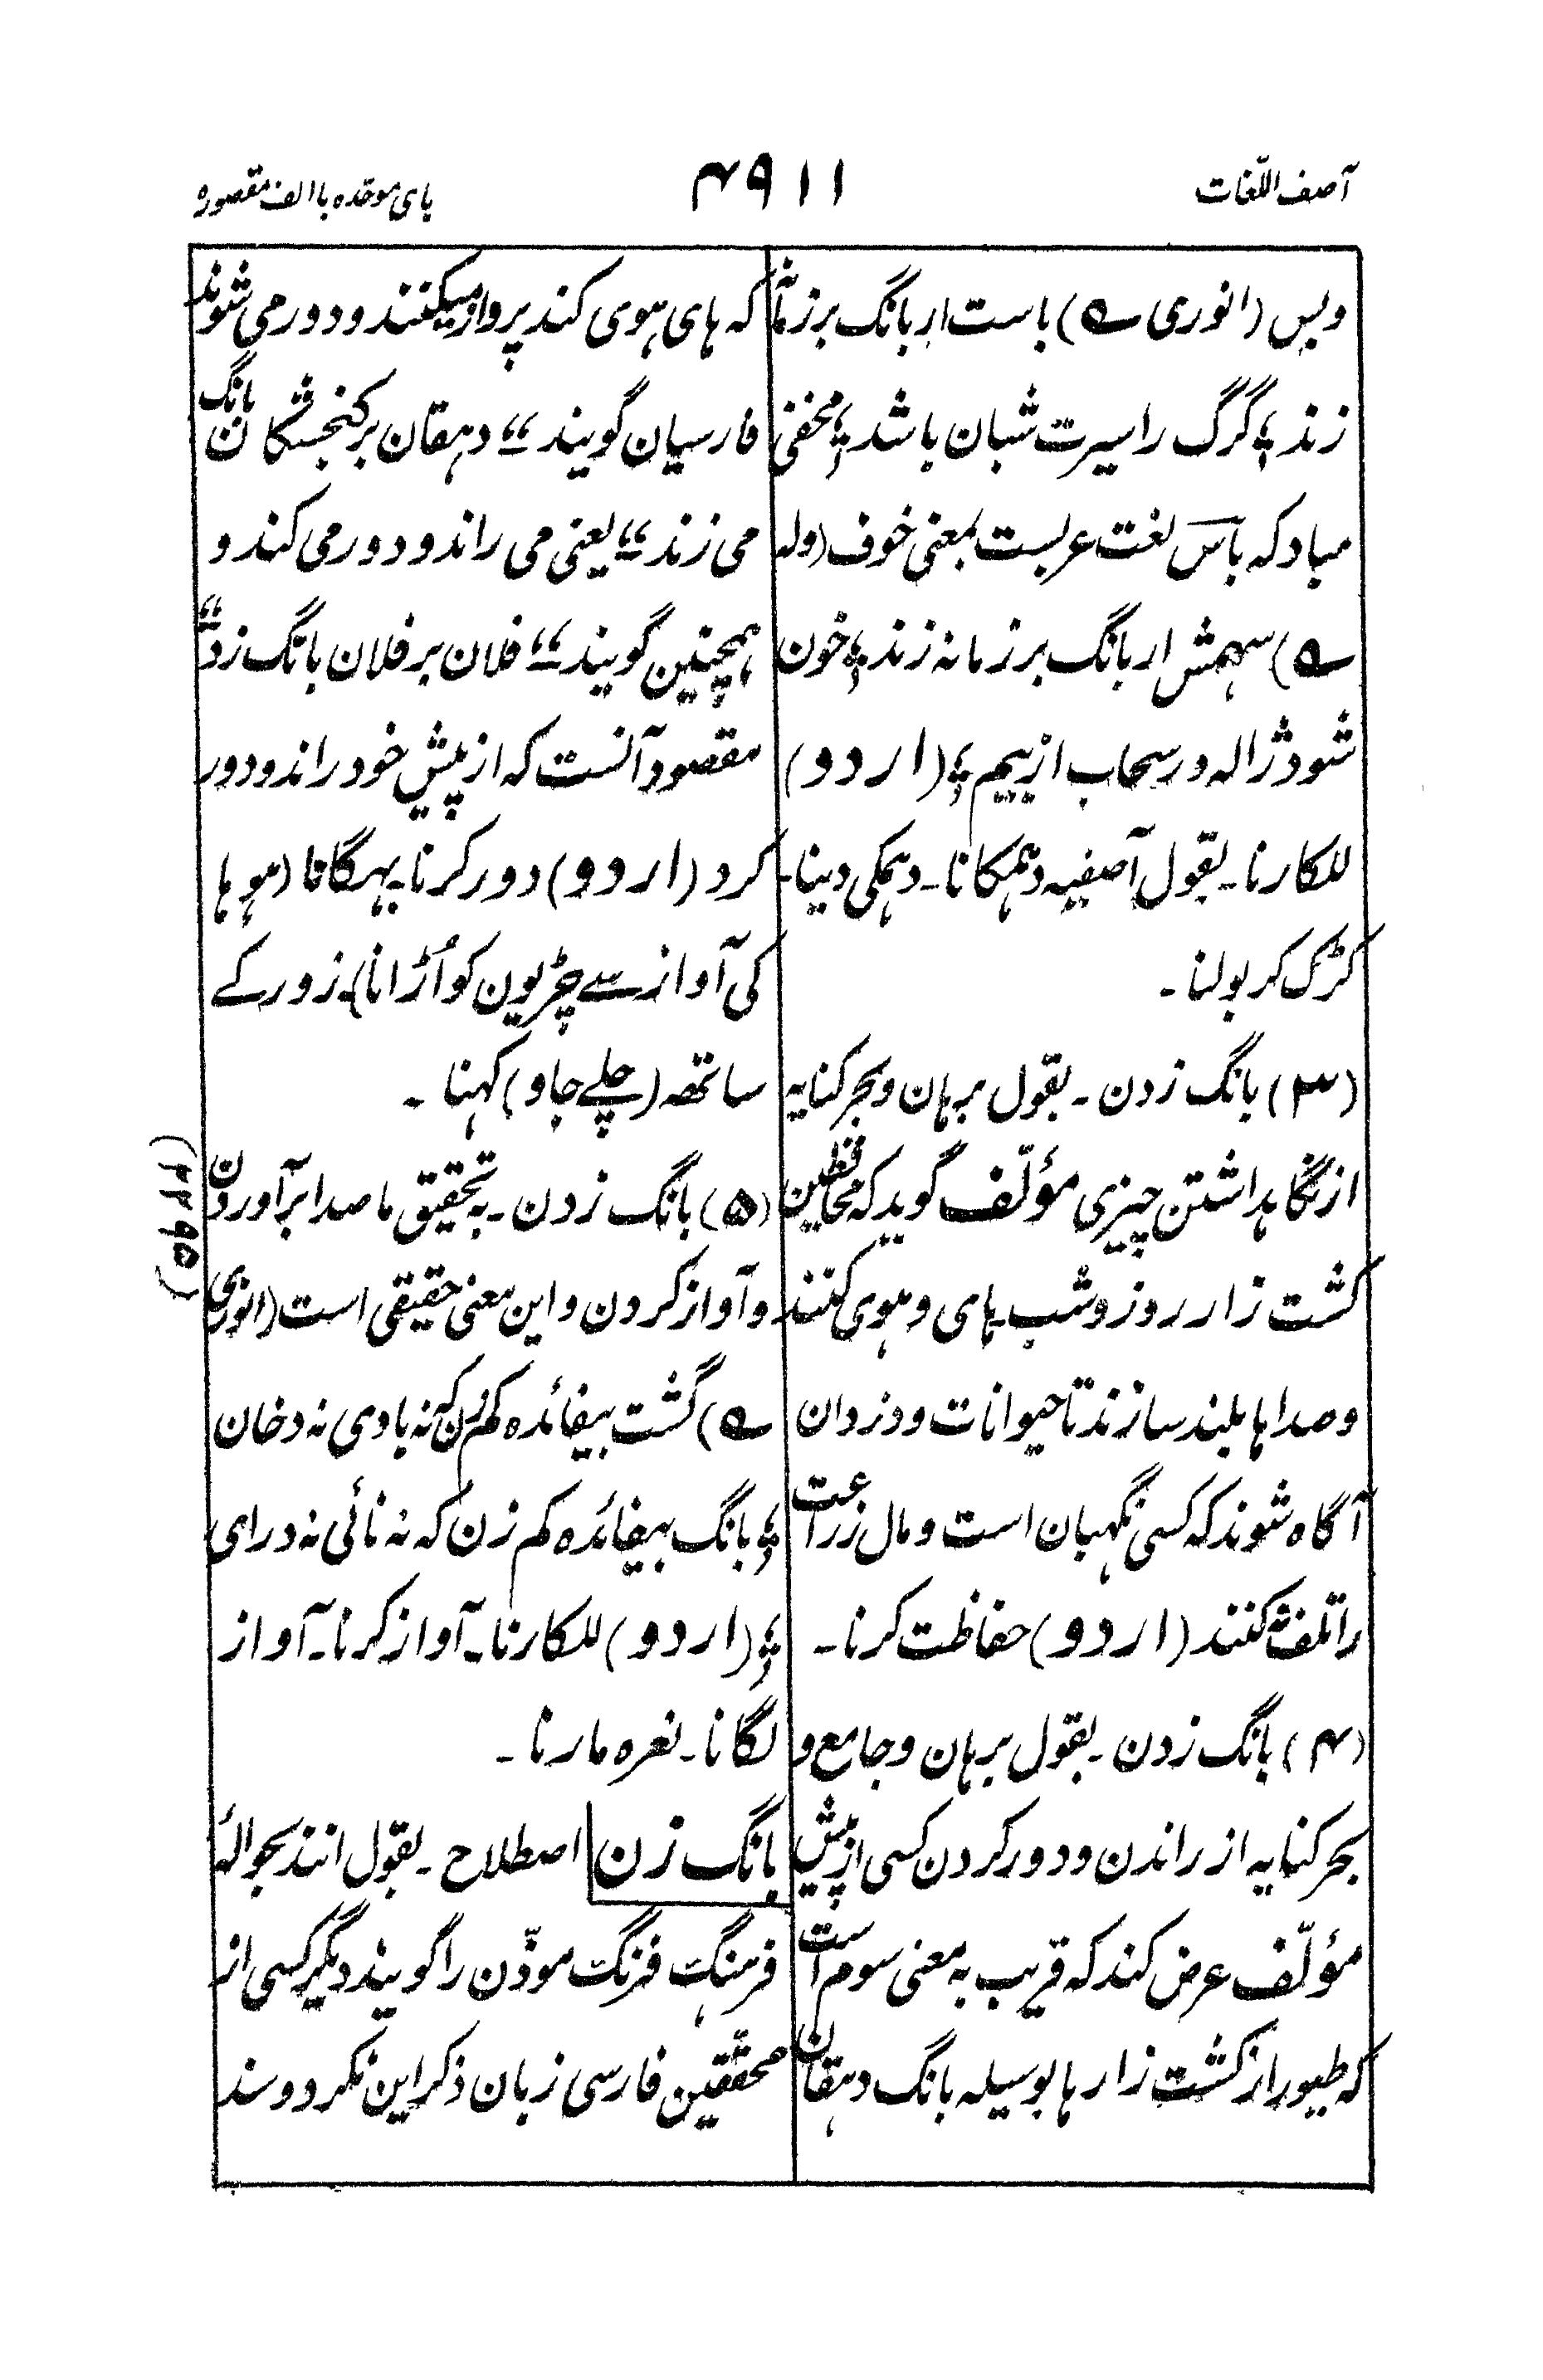 آصف اللّغات
۴۹۱۱
بای موحّده با الف مقصوره
وبس (انوری ے) باست ار بانگ بر زمانہ
زند ؛ گرگ را سیرت شبان باشد ؛ مخفی
مباد کہ باس لغت عربست بمعنی خوف (ولہ
ے) سہمش ار بانگ بر زمانہ زند ؛ خون
شود ژالہ در سحاب از بیم ؛ (اردو)
للکارنا۔ بقول آصفیہ دہمکانا۔ دہمکی دینا۔
کڑک کر بولنا۔
(۳) بانگ زدن۔ بقول برہان و بحر کنایہ
از نگاہداشتن چیزی مؤلّف گوید کہ محافظین
کشت زار روز و شب ہای و ہوی کنند
و صداہا بلند سازند تا حیوانات و دزدان
آگاہ شوند کہ کسی نگہبان است و مال زراعت
را تلف نکنند (اردو) حفاظت کرنا۔
(۴) بانگ زدن۔ بقول برہان و جامع و
بحر کنایہ از راندن و دور کردن کسی از پیش
مؤلّف عرض کند کہ قریب بہ معنی سوم است
کہ طیور از کشت زارہا بوسیلہ بانگ دہقان
کہ ہای ہوی کند پرواز میکنند و دور می شوند
فارسیان گویند “ دہقان بر کنجشکان بانگ
می زند “ یعنی می راند و دور می کند و
ہمچنین گویند “ فلان بر فلان بانگ زد “
مقصود آنست کہ از پیش خود راند و دور
کرد (اردو) دور کرنا۔ بہگانا (ہو ہا
کی آواز سے چڑیون کو اُڑانا) زور کے
ساتھہ (چلے جاو) کہنا۔
(۵) بانگ زدن۔ بہ تحقیق ما صدا برآوردن
(۲۲۹۵)
و آواز کردن و این معنی حقیقی است (انوری
ے) گشت بیفائدہ کم زن کہ نہ بادی نہ دخان
؛ بانگ بیفائدہ کم زن کہ نہ نائی نہ درای
؛ (اردو) للکارنا۔ آواز کرنا۔ آواز
لگانا۔ نعرہ مارنا۔
بانگ زن اصطلاح۔ بقول انند بحوالۂ
فرہنگ فرنگ موذّن را گویند دیگر کسی از
محقّقین فارسی زبان ذکر این نکرد و سند